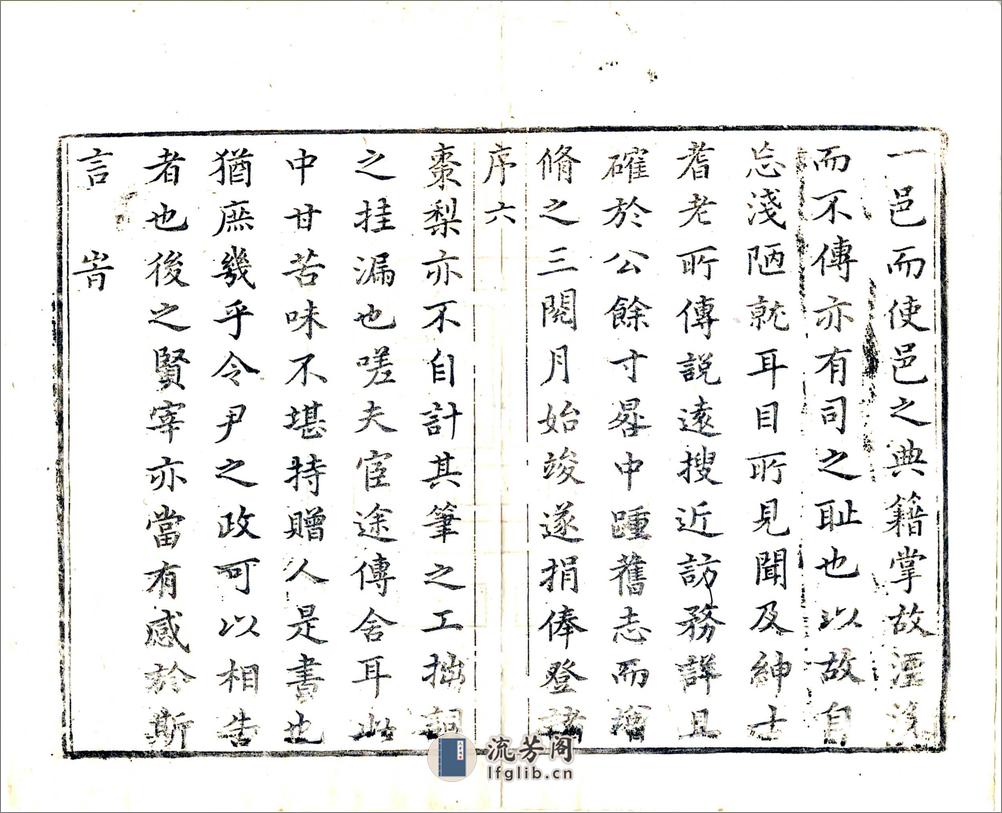 一邑而使邑之典籍掌故湮沒
而不傳亦有司之耻也以故自
忘淺陋就耳目所見聞及紳士
耆老所傳說遠搜近訪務詳且
確於公餘寸晷中踵舊志而增
脩之三閱月始竣遂捐俸登諸
序六
棗梨亦不自計其筆之工拙詞
之挂漏也嗟夫宦途傳舍耳此
中甘苦味不堪持贈人是書也
猶庶幾乎令尹之政可以相告
者也後之賢宰亦當有感於斯
言 旹
流芳阁
lfglib.cn